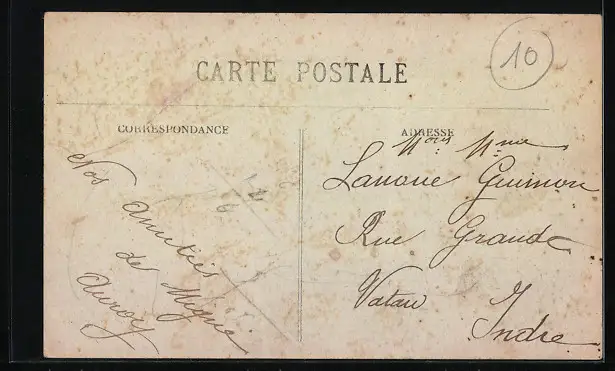 10
CARTE POSTALE
CORRESPONDANCE
Nos amitiés
de Migné
Auroy
ADRESSE
Mme
Lanoue Guimon
Rue Grande
Vatan
Indre